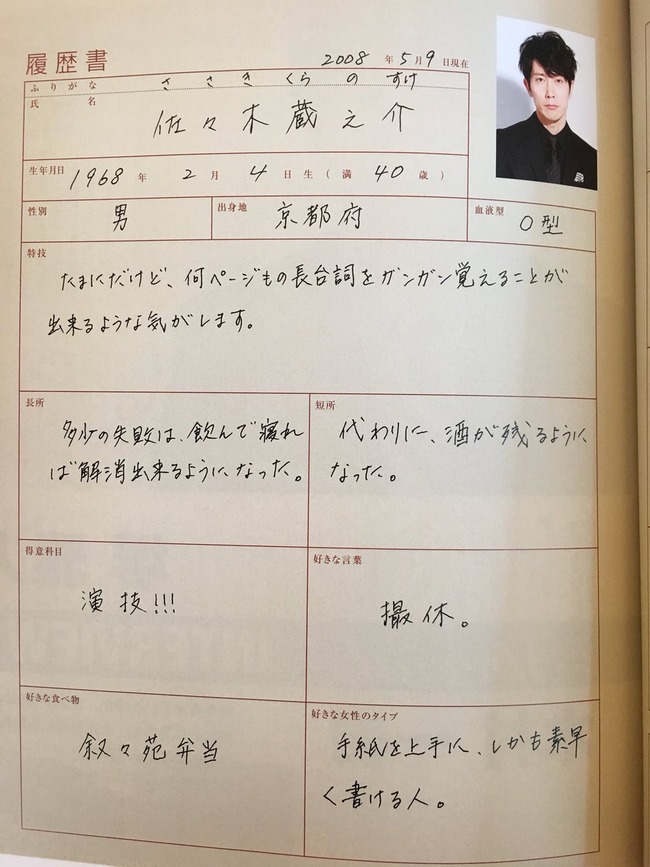 履歴書 2008年5月9日現在
ふりがな ささきくらのすけ
氏名 佐々木蔵之介
生年月日 1968年2月4日生(満40歳)
性別 男 出身地 京都府 血液型 O型
特技
たまにだけど、何ページもの長台詞をガンガン覚えることが
出来るような気がします。
長所
多少の失敗は、飲んで寝れ
ば解消出来るようになった。
短所
代わりに、酒が残るように
なった。
得意科目
演技!!!
好きな言葉
撮休。
好きな食べ物
叙々苑弁当
好きな女性のタイプ
手紙を上手に、しかも素早
く書ける人。